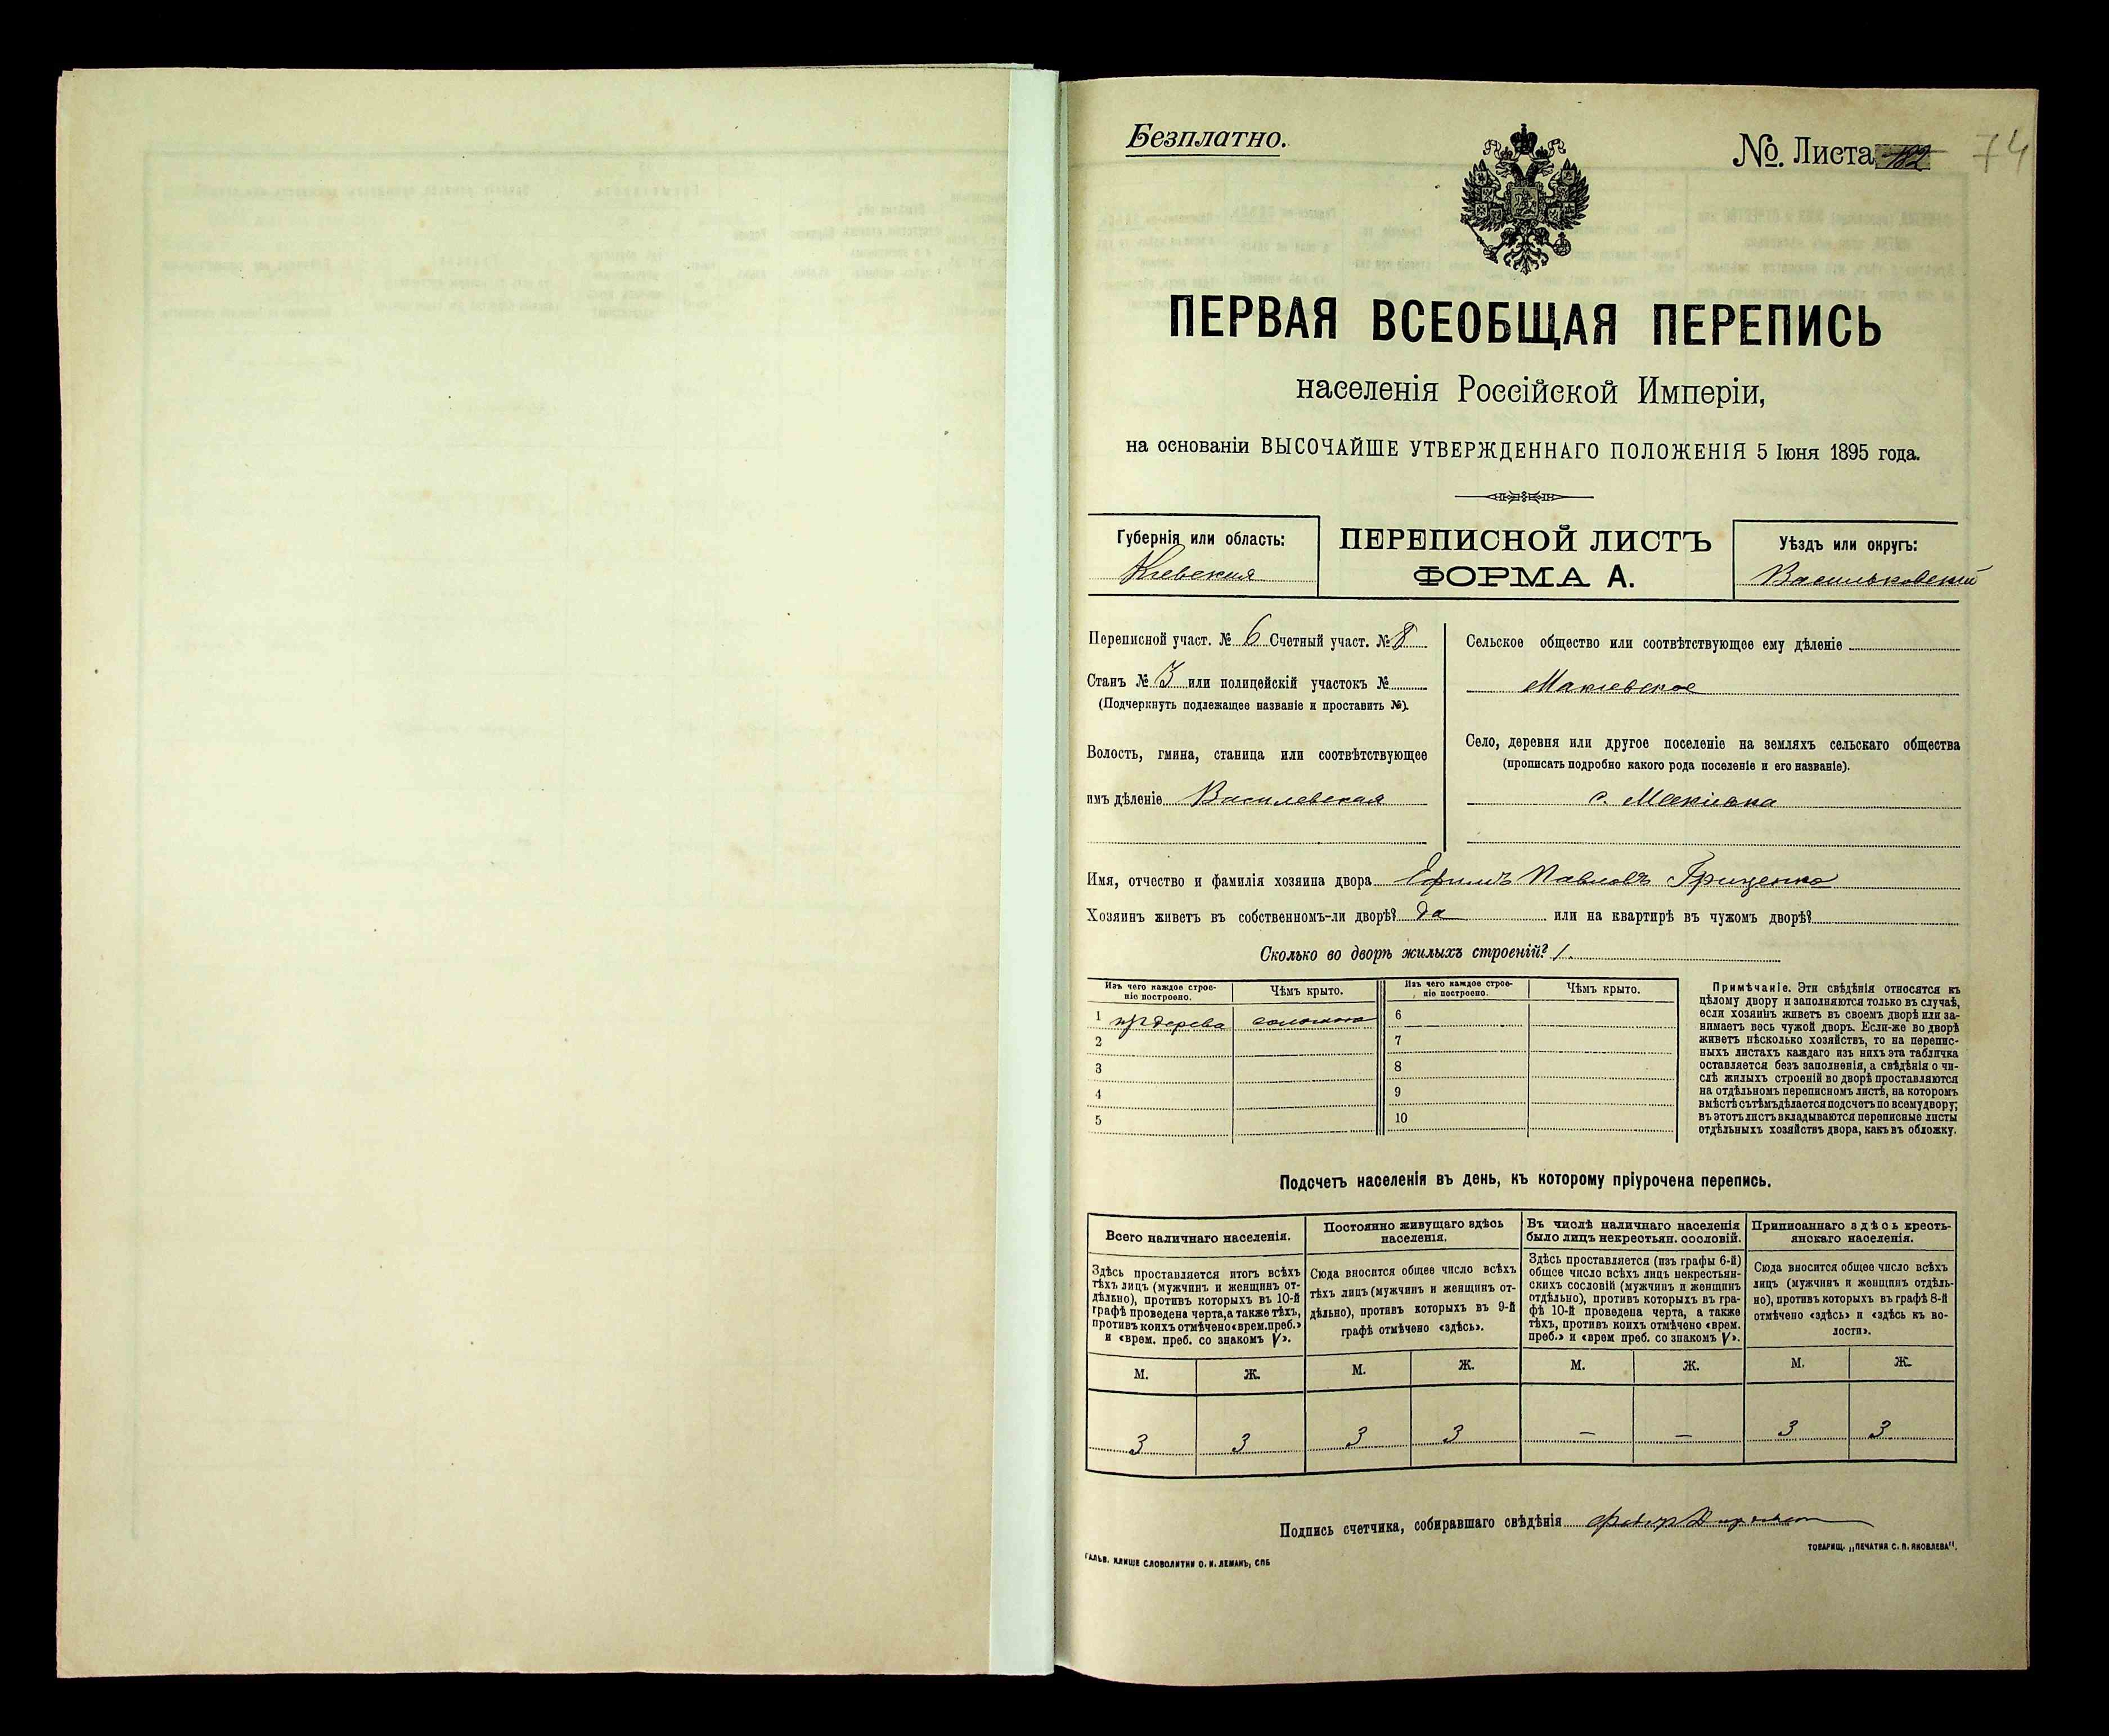 Безплатно.
№. Листа 74
ПЕРВАЯ ВСЕОБЩАЯ ПЕРЕПИСЬ
населенія Россійской Имперіи,
на основаніи ВЫСОЧАЙШЕ УТВЕРЖДЕННАГО ПОЛОЖЕНІЯ 5 Іюня 1895 года.
Губернія или область:
Кіевская
ПЕРЕПИСНОЙ ЛИСТЪ
ФОРМА А.
Уѣздъ или округъ:
Васильковскій
Переписной участ. № 6 Счетный участ. № 8
Станъ № 3 или полицейскій участокъ №
(Подчеркнуть подлежащее названіе и проставить №).
Волость, гмина, станица или соотвѣтствующее
имъ дѣленіе Василевская
Сельское общество или соотвѣтствующее ему дѣленіе
Макіевское
Село, деревня или другое поселеніе на земляхъ сельскаго общества
(прописать подробно какого рода поселеніе и его названіе).
с. Макіевка
Имя, отчество и фамилія хозяина двора Ефимъ Павловъ Гриценко
Хозяинъ живетъ въ собственномъ-ли дворѣ? да или на квартирѣ въ чужомъ дворѣ?
Сколько во дворѣ жилыхъ строеній? 1.
Изъ чего каждое строе-
ніе построено.
Чѣмъ крыто.
Изъ чего каждое строе-
ніе построено.
Чѣмъ крыто.
1 дерева солома 6
2 7
3 8
4 9
5 10
Примѣчаніе. Эти свѣдѣнія относятся къ
цѣлому двору и заполняются только въ случаѣ,
если хозяинъ живетъ въ своемъ дворѣ или за-
нимаетъ весь чужой дворъ. Если-же во дворѣ
живетъ нѣсколько хозяйствъ, то на перепис-
ныхъ листахъ каждаго изъ нихъ эта табличка
оставляется безъ заполненія, а свѣдѣнія о чи-
слѣ жилыхъ строеній во дворѣ проставляются
на отдѣльномъ переписномъ листѣ, на которомъ
вмѣстѣ съ тѣмъ дѣлается подсчетъ по всему двору;
въ этотъ листъ вкладываются переписные листы
отдѣльныхъ хозяйствъ двора, какъ въ обложку.
Подсчетъ населенія въ день, къ которому пріурочена перепись.
Всего наличнаго населенія.
Здѣсь проставляется итогъ всѣхъ
тѣхъ лицъ (мужчинъ и женщинъ от-
дѣльно), противъ которыхъ въ 10-й
графѣ проведена черта, а также тѣхъ,
противъ коихъ отмѣчено «врем. преб.»
и «врем. преб. со знакомъ V».
Постоянно живущаго здѣсь
населенія.
Сюда вносится общее число всѣхъ
тѣхъ лицъ (мужчинъ и женщинъ от-
дѣльно), противъ которыхъ въ 9-й
графѣ отмѣчено «здѣсь».
Въ числѣ наличнаго населенія
было лицъ некрестьян. сословій.
Здѣсь проставляется (изъ графы 6-й)
общее число всѣхъ лицъ некрестьян-
скихъ сословій (мужчинъ и женщинъ
отдѣльно), противъ которыхъ въ гра-
фѣ 10-й проведена черта, а также
тѣхъ, противъ коихъ отмѣчено «врем.
преб.» и «врем преб. со знакомъ V».
Приписаннаго здѣсь кресть-
янскаго населенія.
Сюда вносится общее число всѣхъ
лицъ (мужчинъ и женщинъ отдѣль-
но), противъ которыхъ въ графѣ 8-й
отмѣчено «здѣсь» и «здѣсь къ во-
лости».
М. Ж. М. Ж. М. Ж. М. Ж.
3 3 3 3 — — 3 3
Подпись счетчика, собиравшаго свѣдѣнія
ГАЛЬВ. КЛИШЕ СЛОВОЛИТНИ О. И. ЛЕМАНЪ, СПБ
ТОВАРИЩ. „ПЕЧАТНЯ С. П. ЯКОВЛЕВА".